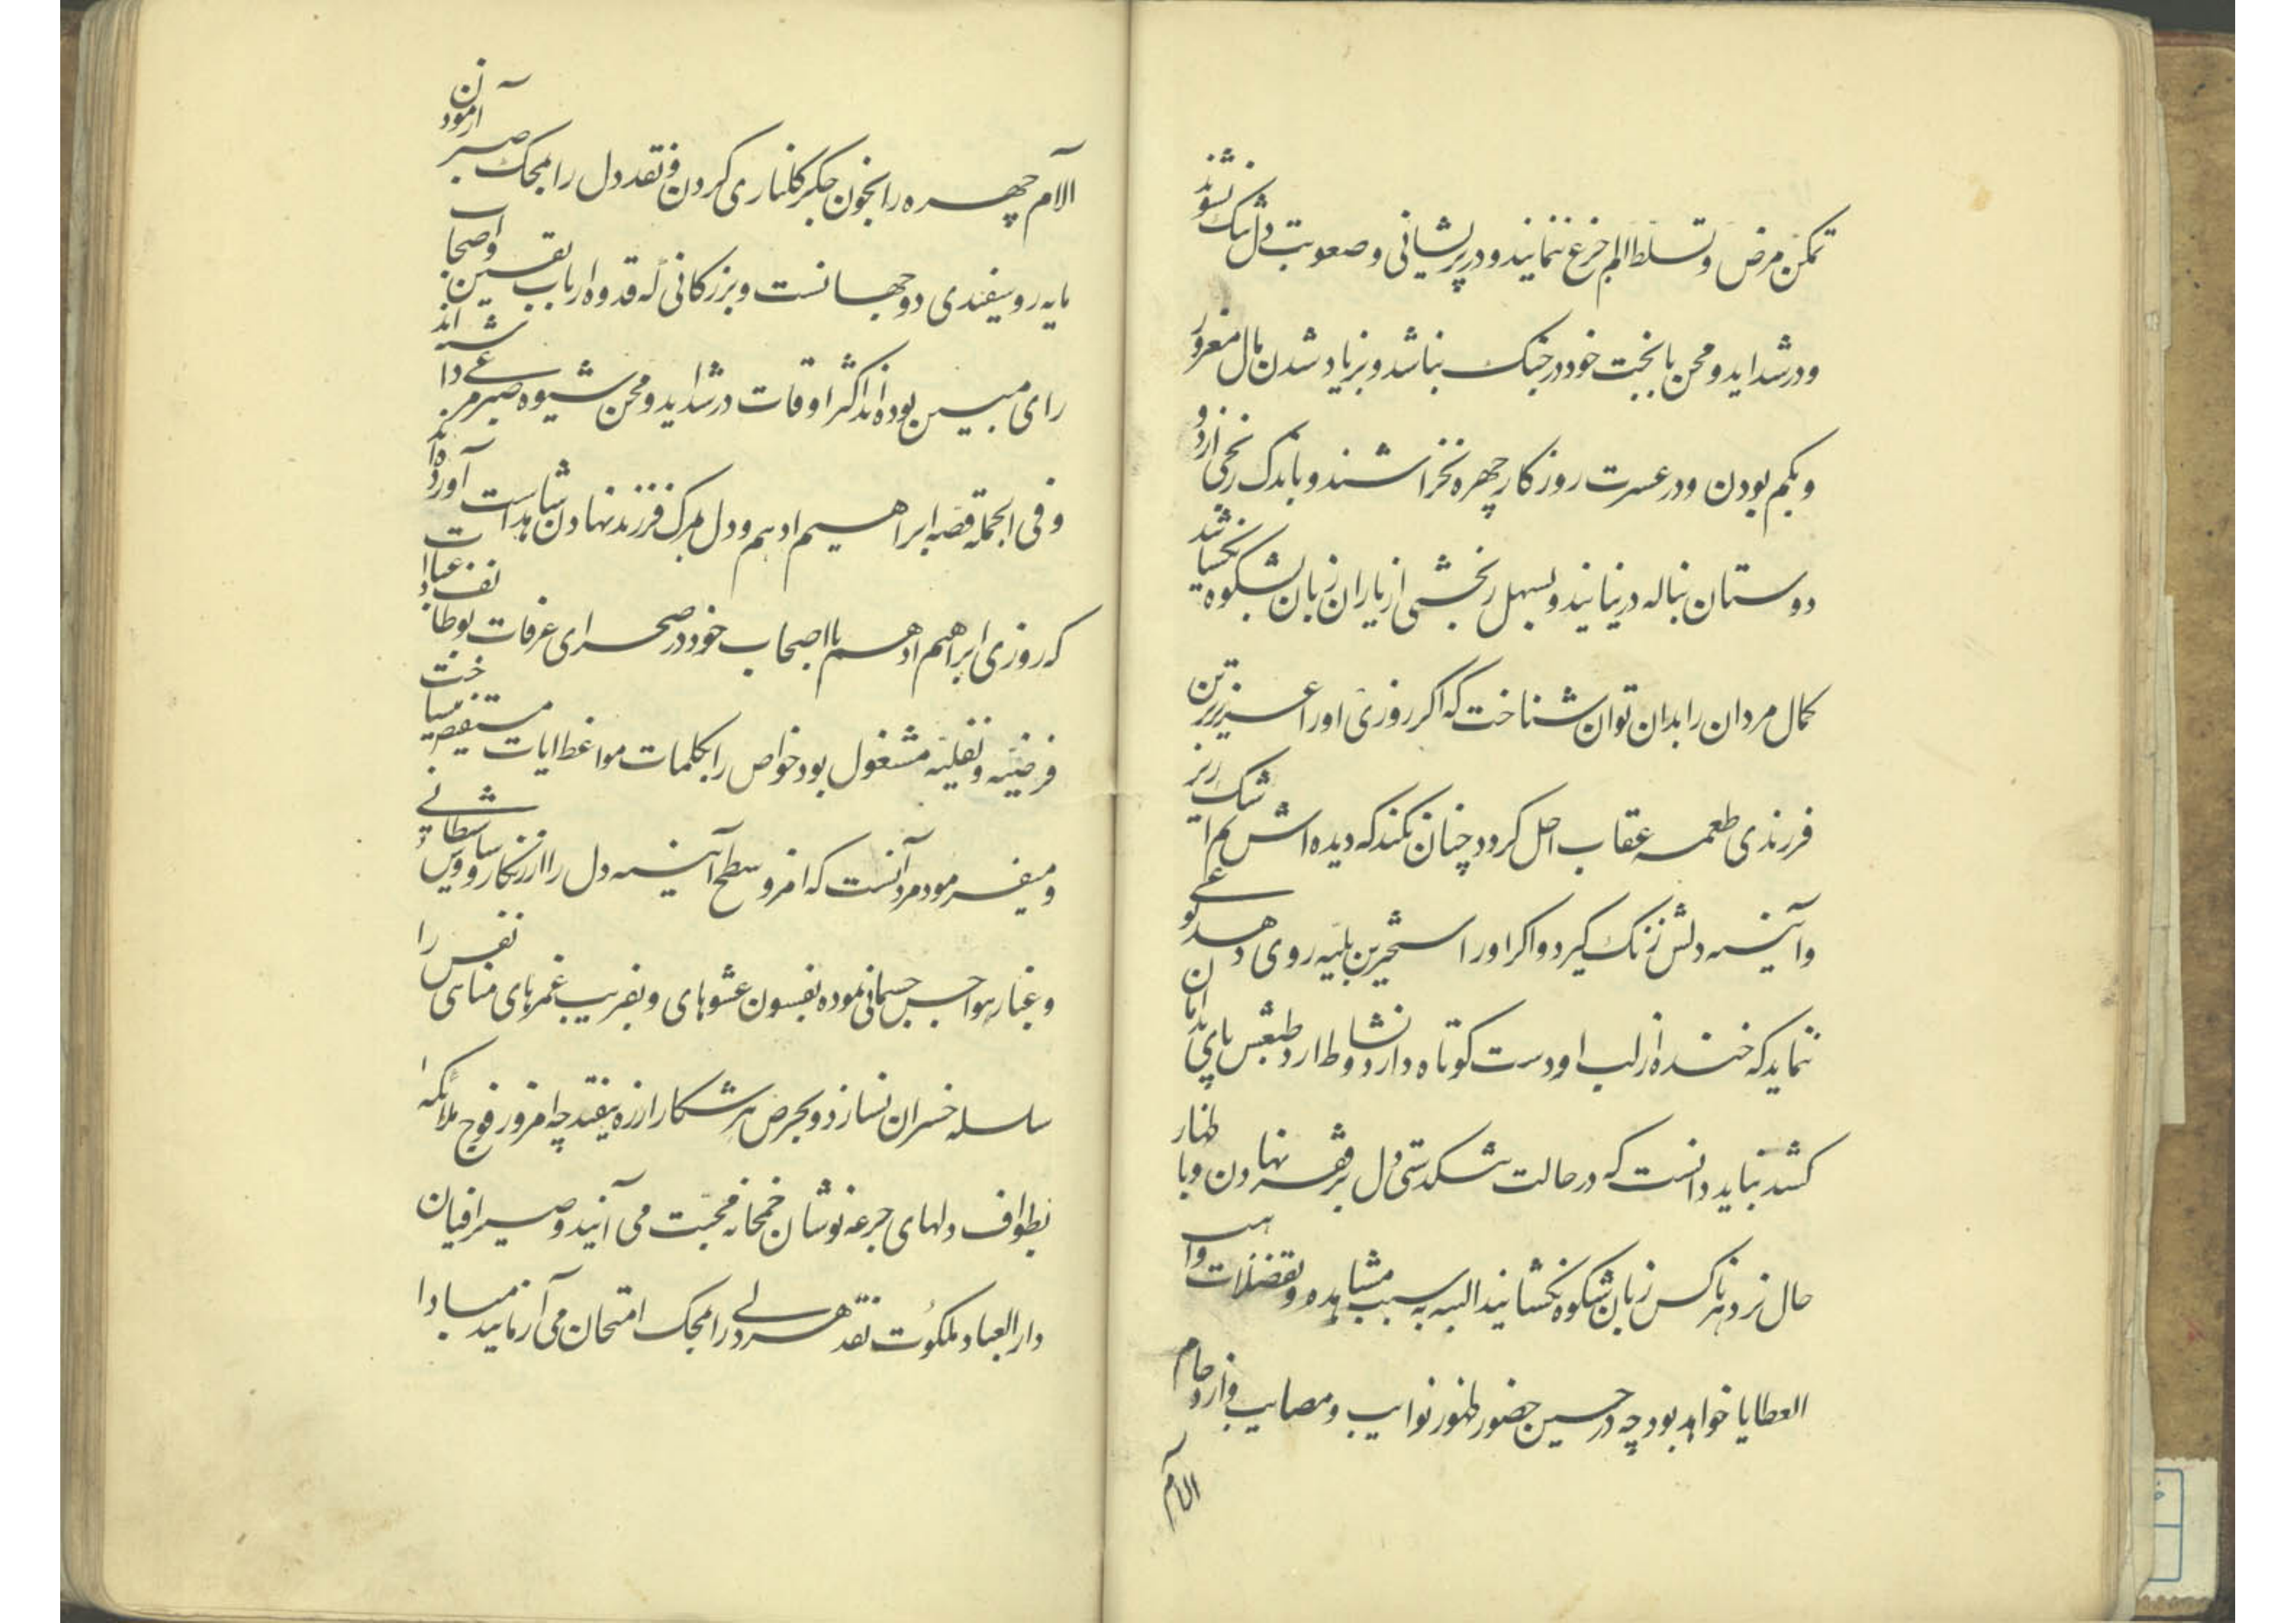 تمکن مرض و تسلط الم جزع ننمایند و در پریشانی و صعوبت دل تنک نشوند
و در شداید و محن با بخت خود در جنک نباشد و بزیاد شدن مال مغرور
و بکم بودن و در عسرت روزکار چهره نخراشند و باندک رنجی از
دوستان بناله درنیایند و بسهل رنجشی از یاران زبان بشکوه نکشایند
کمال مردان را بدان توان شناخت که اکر روزی او را عزیزترین
فرزندی طعمه عقاب اجل کردد چنان نکند که دیده اش کم اشک ریزد
و آینه دلش زنک کیرد و اکر او را بلیه روی دهد
ننماید که خنده از لب او دست کوتاه دارد و نشاط از طبعش پای بدامان
کشد نباید دانست که در حالت تنکدستی دل بر فقر نهادن و با ظهار
حال نزد هر ناکس زبان شکوه نکشانید البته به سبب مشاهده و تفضلات واهب
العطایا خواهد بود چه در حین حضور ظهور نوایب و مصایب و ازدحام
الام
الام چهره را بخون جکر کلناری کردن و نقد دل را بمحک صبر آزمودن
مایه روسفیدی دو جهانست و بزرکانی که قدوه ارباب یقین و اصحاب
رای مبین بوده اند اکثر اوقات در شداید و محن شیوه صبر مرعی داشته اند
و فی الجمله قصه ابراهیم ادهم و دل بمرک فرزند نهادن
که روزی ابراهیم ادهم با اصحاب خود در صحرای عرفات بوظایف عبادات
فرضیه و نفلیه مشغول بود خواص را بکلمات مواعظ ایات مستفیض میساخت
و میفرمود مرد آنست که امروز سطح آینه دل را از زنکار وساوس شیطانی
و غبار هواجس جسمانی نموده بفسون عشوهای و بفریب غمزهای نفس را
سلسله خسران نسازد و بحرص هر شکار از ره نیفتد چه امروز فوج ملائکه
بطواف دلهای جرعه نوشان خمخانه محبت می آیند و صیرافیان
دارالعباد ملکوت نقد هر دلی را بمحک امتحان می آزمایند مبادا